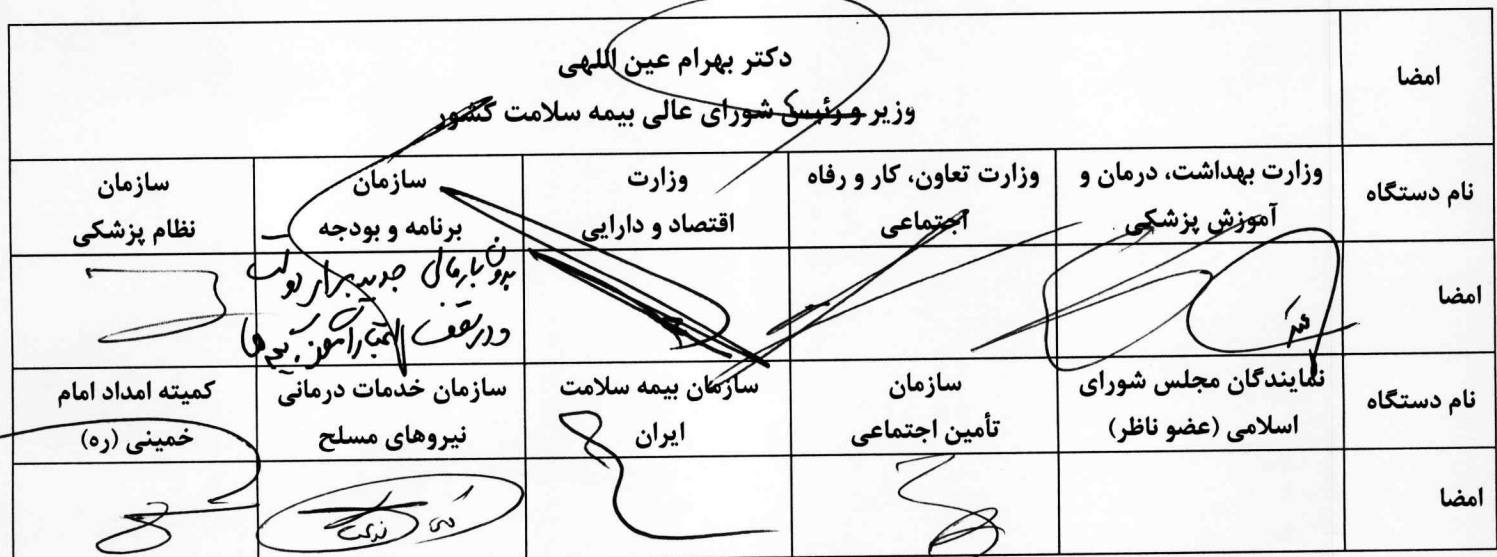 امضا
دکتر بهرام عین اللهی
وزیر و رئیس شورای عالی بیمه سلامت کشور
نام دستگاه
وزارت بهداشت، درمان و
آموزش پزشکی
وزارت تعاون، کار و رفاه
اجتماعی
وزارت
اقتصاد و دارایی
سازمان
برنامه و بودجه
سازمان
نظام پزشکی
امضا
بدون بار مالی جدید برای دولت
و در سقف
نام دستگاه
نمایندگان مجلس شورای
اسلامی (عضو ناظر)
سازمان
تأمین اجتماعی
سازمان بیمه سلامت
ایران
سازمان خدمات درمانی
نیروهای مسلح
کمیته امداد امام
خمینی (ره)
امضا